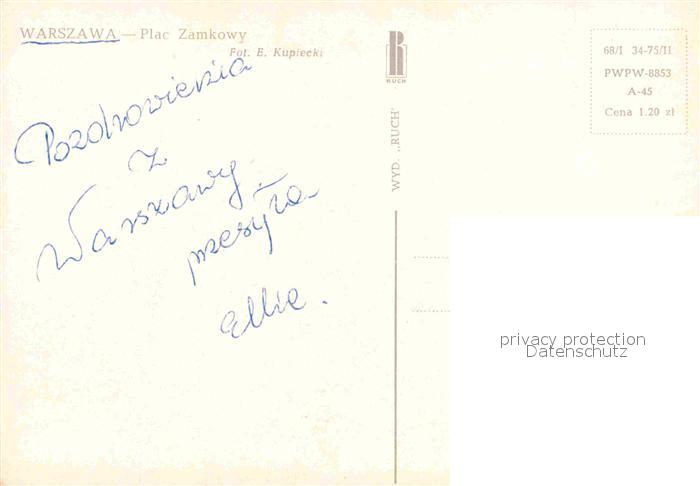 WARSZAWA — Plac Zamkowy
Fot. E. Kupiecki
Pozdrowienia
z
Warszawy
przesyła
Ellie.
RUCH
WYD. „RUCH"
68/I 34-75/II
PWPW-8853
A-45
Cena 1.20 zł
privacy protection
Datenschutz